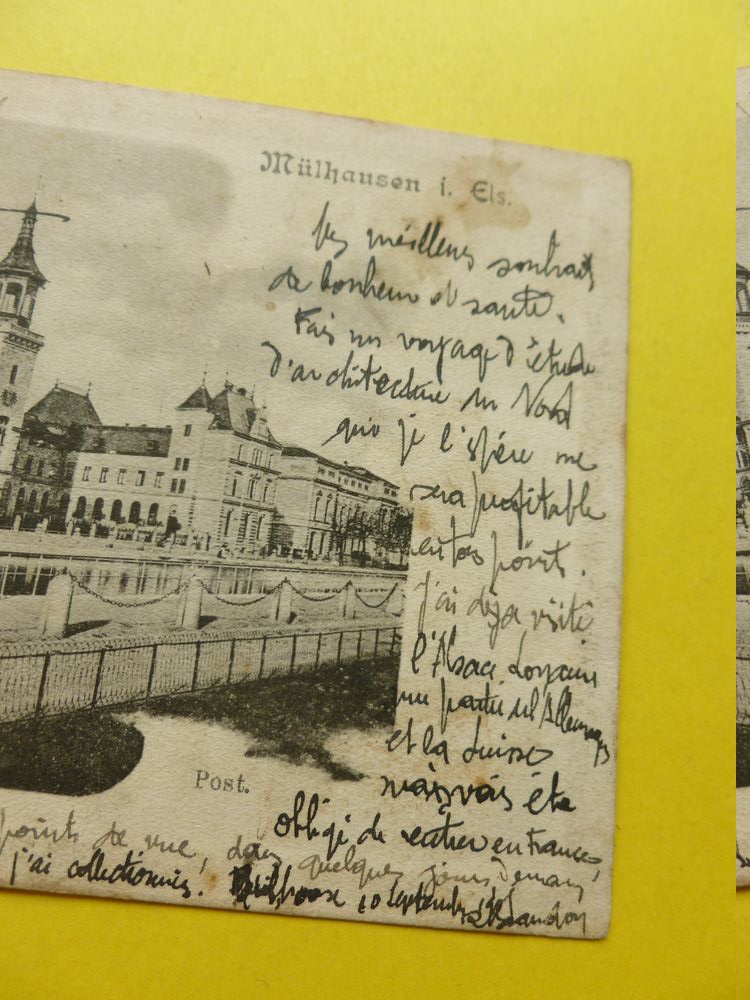 Mülhausen i. Els.
meilleurs souhaits
de bonheur et santé.
Fais un voyage d'étude
d'architecture du Nord
qui je l'espère me
sera profitable
en tos point.
J'ai déja visité
l'Alsace Lorraine
une partie de l'Allemagne
et la Suisse
mais vais éte
obligé de rentrer en France,
point de vue, dans quelques jours
j'ai collectionnés. 10 Septembre
Post.